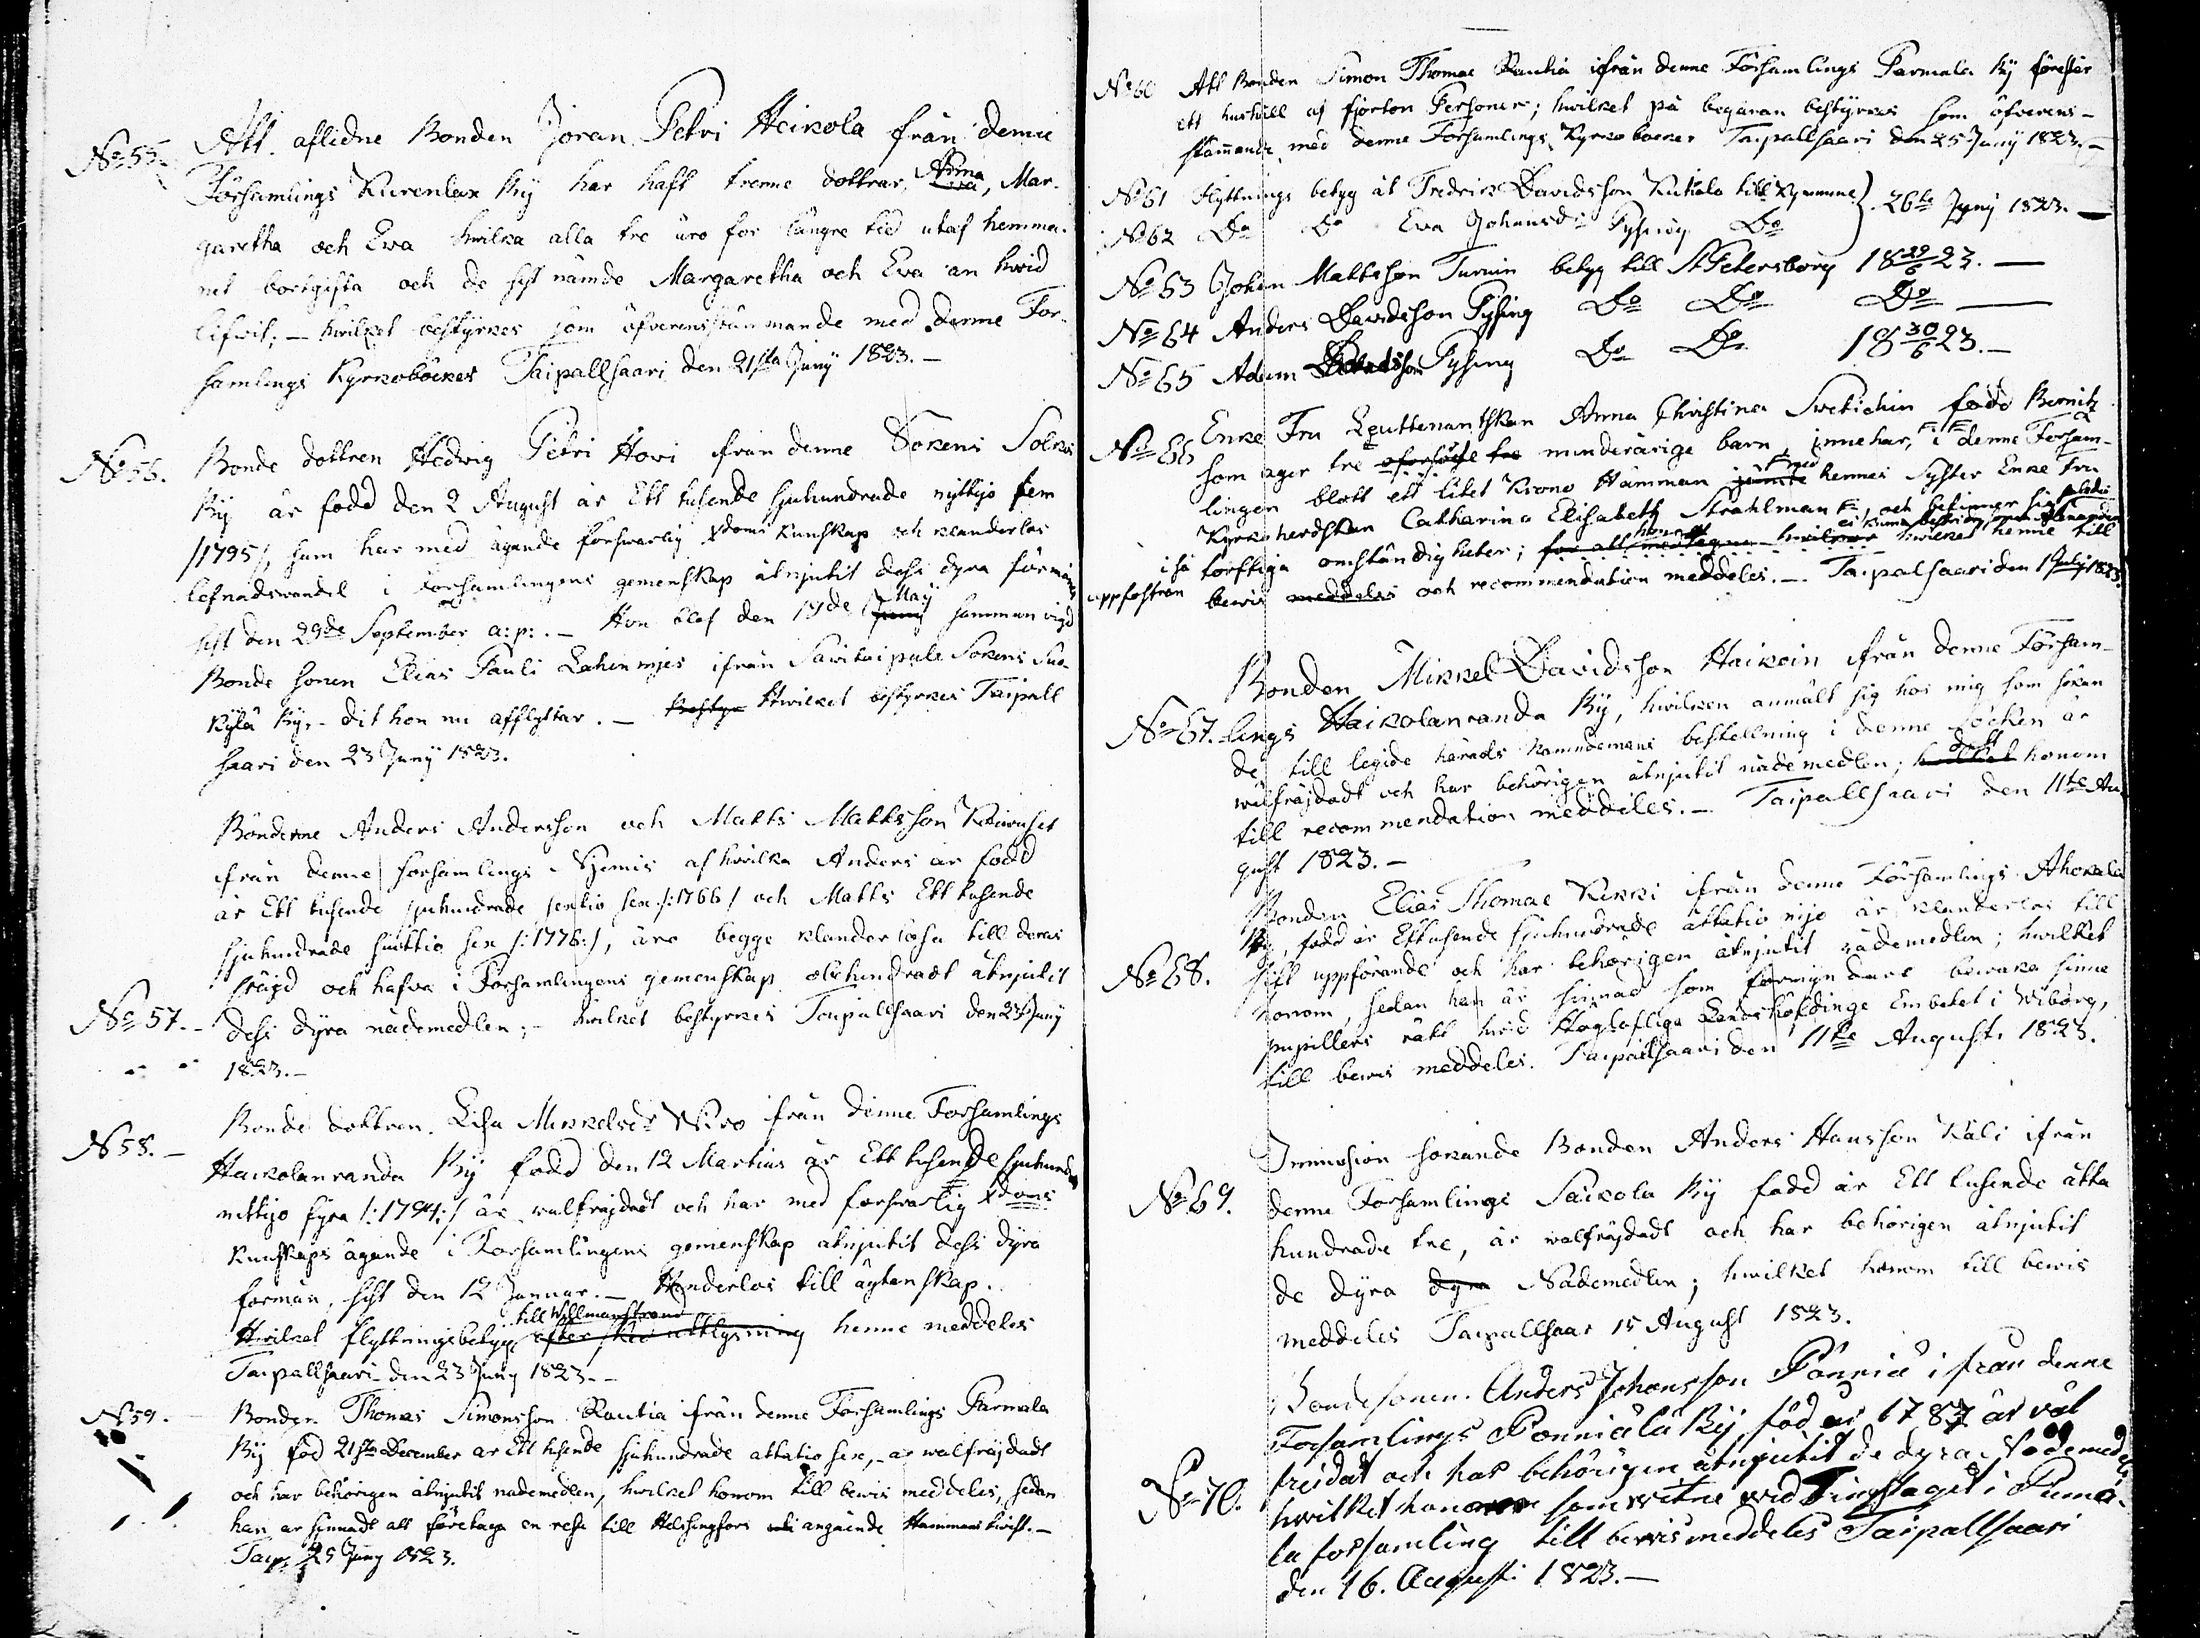 No 55. Att aflidne Bonden Jöran Petri Heikola från denne
Församlings Kurenlax By har haft trenne döttrar, Anna, Mar-
garetha och Eva hvilka alla tre äro för längre tid utaf hemma-
net bortgifta och de sist nämde Margaretha och Eva än hvid
lifvit; — hvilket bestyrkes som öfverensstämmande med denne För-
samlings Kyrkoböcker Taipallsaari den 21sta Juny 1823. —
No 56. Bonde dottren Hedwig Petri Howi från denne Sokens Solkis
By är född den 2 August år Ett tusende sjuhundrade nyttijo fem
/1795/, som har med ägande försvarlig Xdoms Kunskap och klanderlös
lefnadswandel i Församlingens gemenskap åtnjutit dess dyra förmåner
sist den 29de September a: p:. — Hon blef den 19de May Juny samman vigd
Bonde sonen Elias Pauli Lahenmies ifrån Savitaipale Sokens Suo-
kylä By, dit hon nu afflyttar. — Bestyr Hwilket bestyrkes Taipall
saari den 23 Juny 1823.
Bönderne Anders Andersson och Matts Mattsson
från denne Församlings af hvilka Anders är född
år Ett tusende sjuhundrade sextio sex /:1766/ och Matts Ett tusende
sjuhundrade sjuttio sex /:1776:/, äro begge klanderlösa till deras
fräjd och hafva i Församlingens gemenskap obehindradt åtnjutit
No 57. — dess dyra nådemedlen; — hvilket bestyrkes Taipallsaari den 23 Juny
1823. —
N 58. — Bonde dottren. Lisa Mikkelsdr Wiro från denne Församlings
Haikolanranda By född den 12 Martius år Ett tusende sjuhundrade
nittijo fyra /:1794:/ är walfräjdadt och har med försvarlig Xdoms
Kunskaps ägande i Församlingens gemenskap åtnjutit dess dyra
förmån, sist den 12 Januar. — Hinderlös till äktenskap.
till Willmanstrand
Hvilket flyttningsbetyg efter sked utlysning henne meddeles
Taipallsaari den 23 Juny 1823. —
N 59. Bonden Thomas Simonsson Rautia från denne Församlings Parmala
By född 21sta December år Ett tusende sjuhundrade åttatio sex, — är walfräjdadt
och har behörigen åtnjutit nådemedlen, hvilket honom till bewis meddeles, sedan
han är sinnadt att företaga en resa till Helsingfors angående Hemmans twist. —
Taip. 25 Juny 1823.
No 60 Att Bonden Simon Thomae Rautia ifrån denne Församlings Parmala By förestår
ett hushåll af fjorton Personer; hvilket på begäran bestyrkes som öfverens-
stämmande med denne Församlings Kyrkoböcker Taipallsaari den 25 Juny 1823. —
No 61 Flyttnings betyg åt Fredrik Davidsson Kukola till Kymmene } 26te Juny 1823. —
No 62 Do Do Eva Johansdr Pysing Do
No 63 Johan Mattsson Turuin betyg till St Petersborg 18 29/6 23. —
No 64 Anders Davidsson Pysing Do Do Do —
No 65 Adam Pysing Do Do 18 30/6 23. —
No 66 Enke Fru Lieuttenantskan Anna Christina Svetichin född Bernitz
som äger tre oförsörgde tre minderårige barn, innehar, i denne Försam-
lingen blott ett litet Krono Hemman jämte med hennes Syster Enke Fru
Kyrkoherdskan Catharina Elisabeth Strahlman, och befinner sig
i så torftiga omständigheter; hvilket henne till
uppfostran bewis meddeles och recommendation meddeles. — Taipalsaari den 1 July 1823.
Bonden Mikkel Davidsson Haikoin från denne Försam-
No 67. lings Haikolanranda By, hvilken anmält sig hos mig som sökan
de till legide härads nämndemans beställning i denne Socken är
wälfräjdadt och har behörigen åtnjutit nådemedlen; honom
till recommendation meddeles. — Taipallsaari den 11te Au-
gust 1823. —
Bonden Elias Thomae Kekki ifrån denne Församlings Ahokala
By, född år Ettusende sjuhundrade åttatio nijo är klanderlös till
No 68. sitt uppförande och har behörigen åtnjutit nådemedlen; hvilket
honom, sedan han är sinnad som förmyndare bewaka sinne
pupillers rätt hvid Höglöflige Landshöfdinge Embetet i Wiborg,
till bewis meddeles. Taipallsaari den 11te August 1823.
Immission sökande Bonden Anders Hansson Käli ifrån
No 69. denne Församlings Saikola By född år Ett tusende åtta
hundrade tre, är walfräjdadt och har behörigen åtnjutit
de dyra dyra Nådemedlen; hvilket honom till bewis
meddeles Taipallsaar 15 August 1823.
Bondesonen Anders Johansson Pönniä ifrån denne
Församlings Pönniälä By född år 1787 är väl
frejdat och har behörigen åtnjutit de dyra Nådemedel
No 70. hvilket honom som witne wid Tingstaget i Puma-
la församling till bewis meddeles Taipallsaari
den 16. Augusti 1823. —